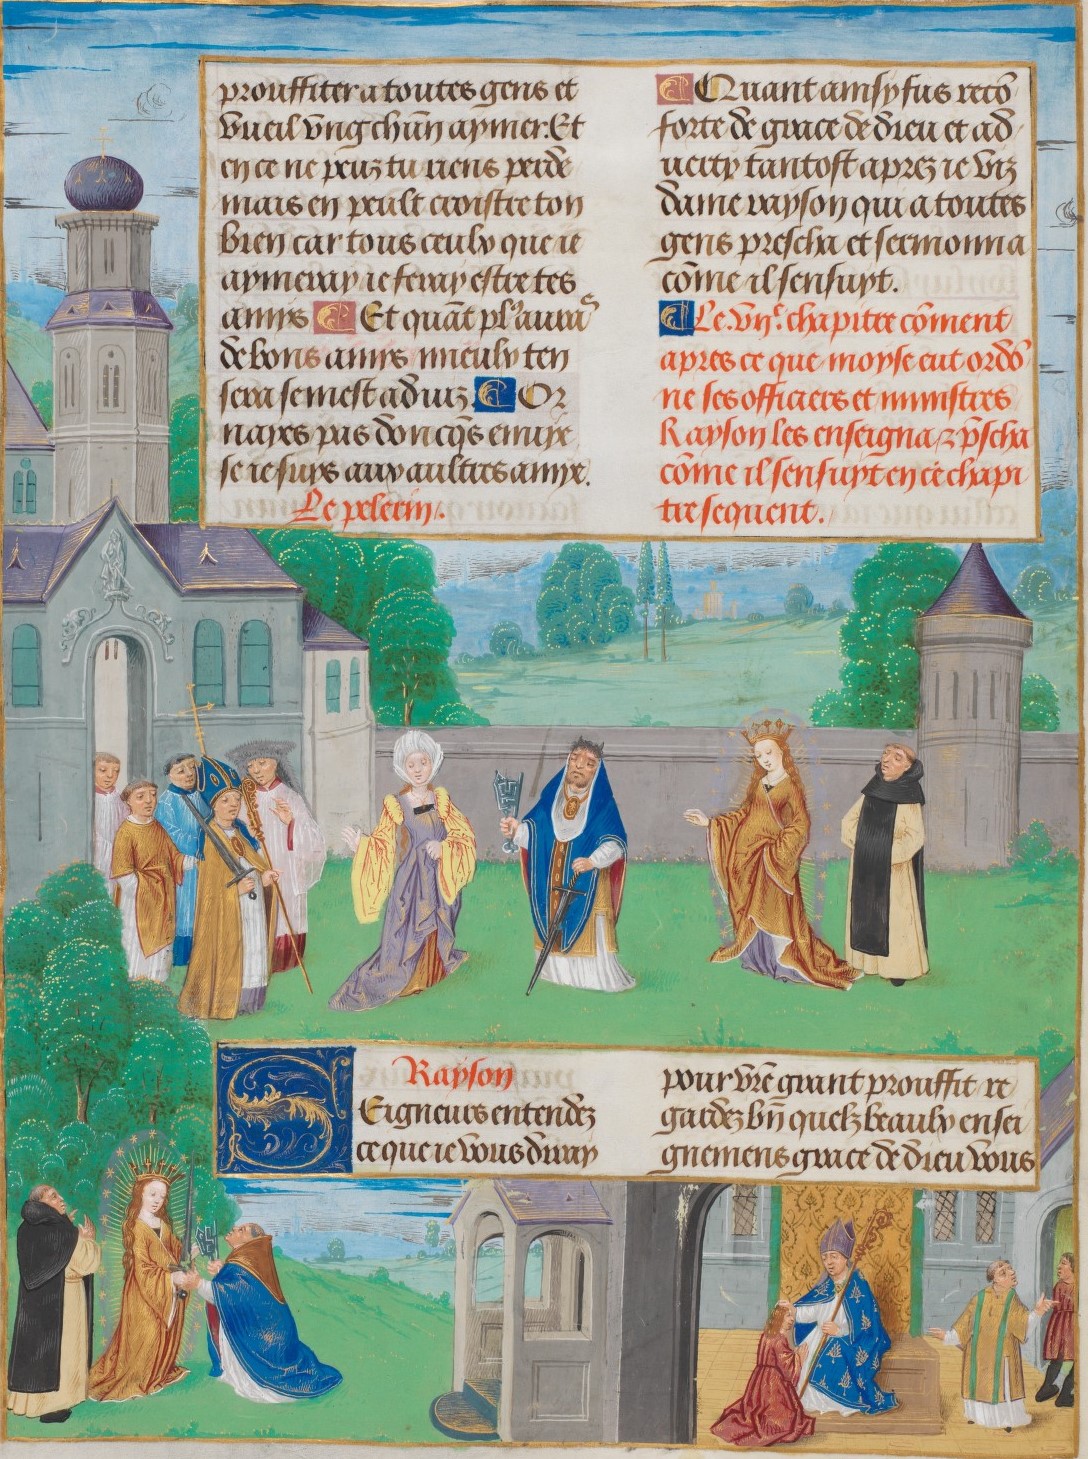 prouffiter a toutes gens et
vueil ungchun aymer. Et
en ce ne peuz tu riens perdre
mais en peult croistre ton
bien car tous ceulx que ie
aymeray ie feray estre tes
amys Et quāt pl' aura
de bons amys mieulx ten
sera se mest aduiz. Or
nayes pas doncqs enuye
se ie suys aux aultres amye.
Le pelerin.
Quant ainsy fus recō
forte de grace de dieu et ad
uerty tantost aprez ie viz
dame rayson qui a toutes
gens prescha et sermonna
cōme il sensuyt.
Le .vij. chapitre cōment
apres ce que moyse eut ordō
ne ses officiers et ministres
Rayson les enseigna, z p̄scha
cōme il sensuyt en ce chapi
tre sequent.
Rayson
Seigneurs entendez
ce que ie vous diray
pour vr̄e grant prouffit re
gardez bn̄ quelz beaulx ensei
gnemens grace de dieu vous